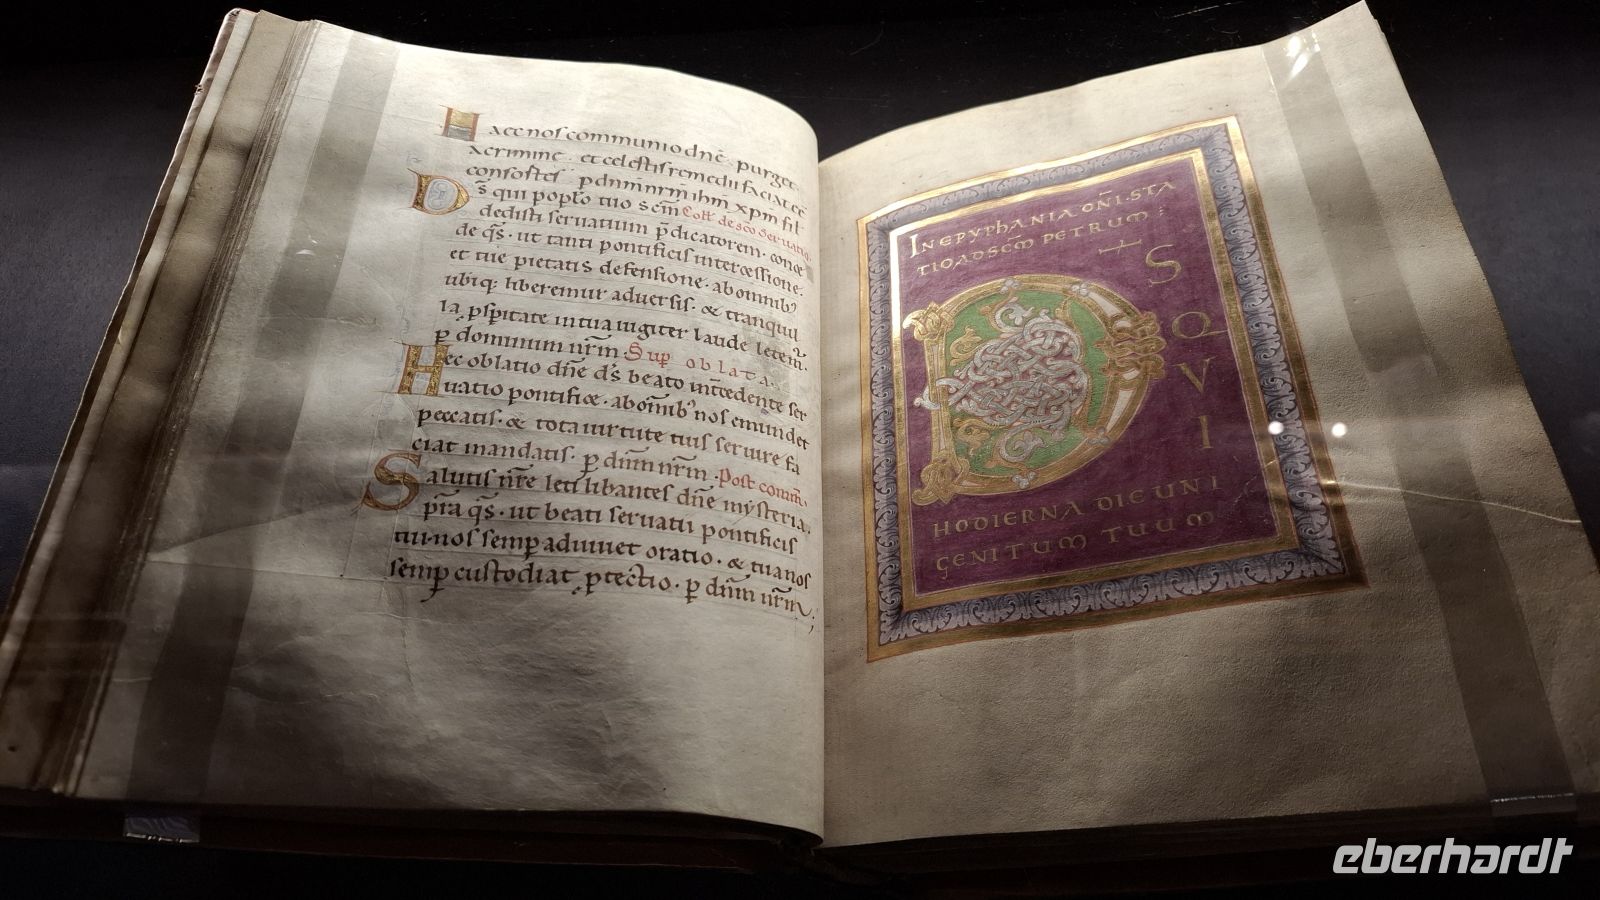 Haec nos communio dnē· purget
a crimine· et celestis remedii faciat eē
consortes· p dnm nrm ihm xpm fil
Ds̄ qui poplo tuo scm̄ Coll̄ de sco Servatio
dedisti servatium p̄dicatorem· conce
de qs̄· ut tanti pontificis intercessione·
et tue pietatis defensione· ab omnib;
ubiq; liberemur adversis· & tranquil
la psp̄itate in tua iugiter laude letem̄·
p̄ dominum nrm̄· Sup̄ oblata·
Hec oblatio dnē ds̄ beato int̄cedente ser
vatio pontifice· ab om̄ib; nos emundet
peccatis· & tota virtute tuis servire fa
ciat mandatis· p̄ dnm̄ nrm̄· Post com̄
Salutis nrē leti libantes dnē mysteria·
p̄ra qs̄· ut beati servatii pontificis
tui· nos semp̄ adiuvet oratio· & tua nos
semp̄ custodiat p̄tectio· p̄ dnm̄ nrm̄;
IN EPYPHANIA DÑI· STA
TIO AD SCM PETRUM:
DS
QVI
HODIERNA DIE UNI
GENITUM TUUM
eberhardt